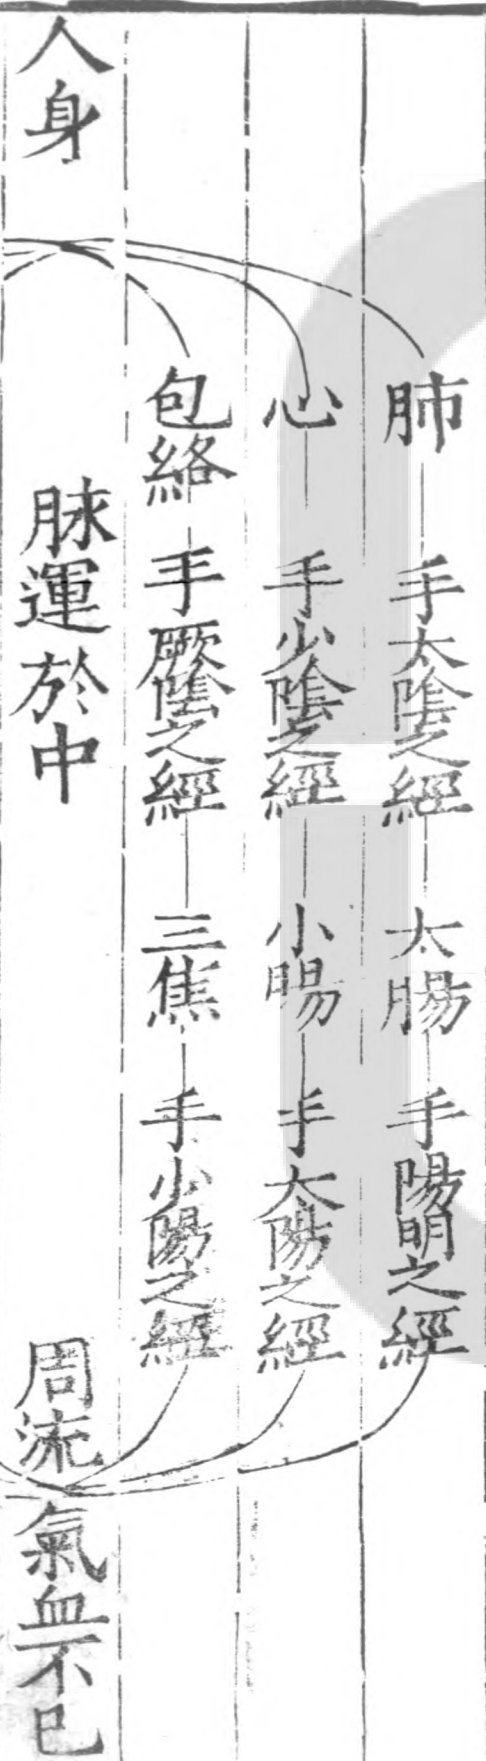 肺　手太陰之經　太腸　手陽明之經
心　手少陰之經　小腸　手太陽之經
包絡　手厥陰之經　三焦　手少陽之經
人身　脉運於中　周流氣血不已